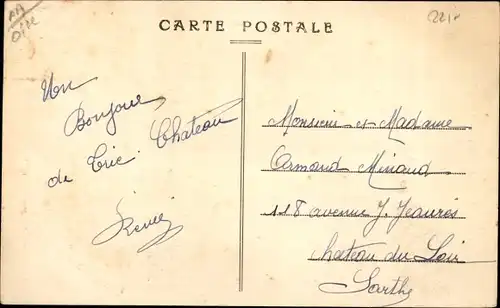 CARTE POSTALE
221
Un
Bonjour
de Trie. Chateau
René
Monsieur et Madame
Armand Minaud
118 avenue J. Jeaurès
Chateau du Loir
Sarthe